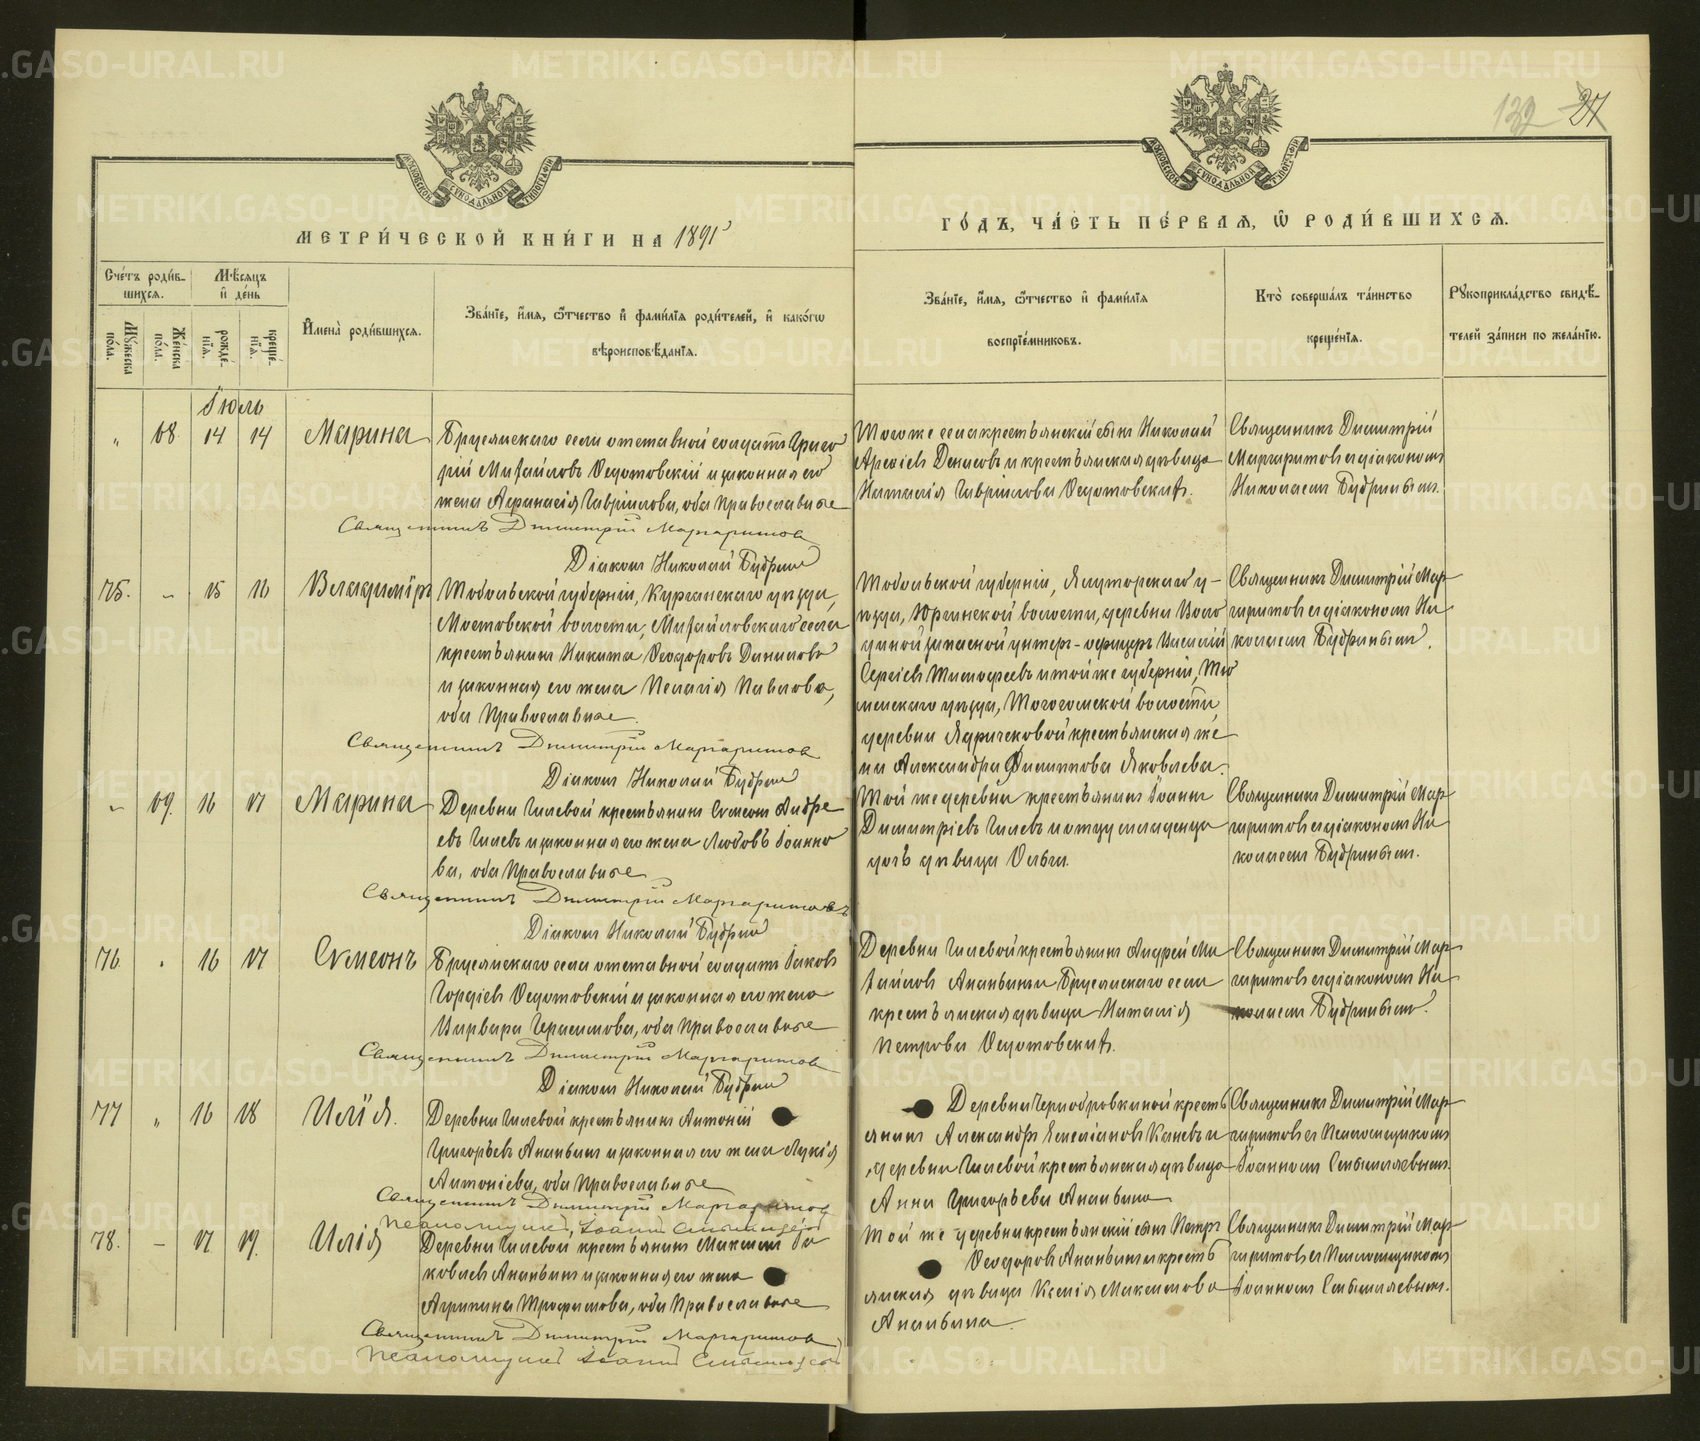 132 27
МЕТРИ́ЧЕСКОЙ КНИ́ГИ НА 1891
ГО́ДЪ, ЧА́СТЬ ПЕ́РВАЯ, Ѡ҆ РОДИ́ВШИХСЯ.
Сче́тъ роди́в-
шихся.
Мѣ́сяцъ
и҆ де́нь
Мꙋ́жеска
по́ла.
Же́нска
по́ла.
рожде́-
нїя.
креще́-
нїя.
И҆мена̀ роди́вшихся.
Зва́нїе, и҆́мя, ѻ҆́тчество и҆ фами́лїя роди́телей, и҆ како́гѡ
вѣроисповѣ́данїя.
Зва́нїе, и҆́мя, ѻ҆́тчество и҆ фами́лїя
воспрїе́мниковъ.
Кто̀ соверша́лъ та́инство
креще́нїя.
Рꙋкоприкла́дство свидѣ́-
телей за́писи по жела́нїю.
Іюль
" 68 14 14 Марина
Бруснянскаго села отставной солдатъ Григо
рій Михайловъ Ѳедотовскій и законная его
жена Аѳанасія Гавриилова, оба Православные
Священникъ Димитрій Маргаритовъ
Діаконъ Николай Будринъ
Того же села крестьянскій сынъ Николай
Денисовъ и крестьянская дѣвица
Наталія Гавриилова Ѳедотовскихъ.
Священникъ Димитрій
Маргаритовъ съ діакономъ
Николаемъ Будринымъ.
75. - 15 16 Владиміръ
Тобольской губерніи, Курганскаго уѣзда,
Мостовской волости, Михайловскаго села
крестьянинъ Никита Ѳеодоровъ Даниловъ
и законная его жена Пелагія Павлова,
оба Православные.
Священникъ Димитрій Маргаритовъ
Діаконъ Николай Будринъ
Тобольской губерніи, Ялуторскаго у-
ѣзда, Юргинской волости, деревни
запасной унтеръ-офицеръ Василій
Сергіевъ Тимофеевъ и той же губерніи, Тю
менскаго уѣзда, волости
деревни крестьянская же
на Александра Филиппова Яковлева.
Священникъ Димитрій Мар-
гаритовъ съ діакономъ Ни
колаемъ Будринымъ.
- 69. 16 17 Марина
Деревни Гилевой крестьянинъ Сѵмеонъ Андре
евъ Гилевъ и законная его жена Любовь Іоанно
ва, оба Православные
Священникъ Димитрій Маргаритовъ
Діаконъ Николай Будринъ
Той же деревни крестьянинъ Іоаннъ
Димитріевъ Гилевъ и отца младенца
дочь дѣвица Ольга.
Священникъ Димитрій Мар-
гаритовъ съ діакономъ Ни
колаемъ Будринымъ.
76. . 16 17 Сѵмеонъ
Бруснянскаго села отставной солдатъ Іаковъ
Гордіевъ Ѳедотовскій и законная его жена
Варвара Герасимова, оба Православные
Священникъ Димитрій Маргаритовъ
Діаконъ Николай Будринъ
Деревни Гилевой крестьянинъ Андрей Ми
хайловъ Ананьинъ, Бруснянскаго села
крестьянская дѣвица Наталія
Петрова Ѳедотовскихъ.
Священникъ Димитрій Мар-
гаритовъ съ діакономъ Ни
колаемъ Будринымъ.
77 " 16 18 Илія.
Деревни Гилевой крестьянинъ Антоній
Григорьевъ Ананьинъ и законная его жена Лукія
Антоніева, оба Православные
Священникъ Димитрій Маргаритовъ
Псаломщикъ Іоаннъ
Деревни Чернобровкиной кресть
янинъ Александръ Емеліановъ Каневъ и
деревни Гилевой крестьянская дѣвица
Анна Григорьева Ананьина
Священникъ Димитрій Мар-
гаритовъ съ Псаломщикомъ
Іоанномъ
78. - 17 19. Илія
Деревни Гилевой крестьянинъ Максимъ Іа
ковлевъ Ананьинъ и законная его жена
Агрипина Трофимова, оба Православные
Священникъ Димитрій Маргаритовъ
Псаломщикъ Іоаннъ
Той же деревни крестьянскій сынъ Петръ
Ѳеодоровъ Ананьинъ и кресть
янская дѣвица Ксенія Максимова
Ананьина.
Священникъ Димитрій Мар-
гаритовъ съ Псаломщикомъ
Іоанномъ
METRIKI.GASO-URAL.RU